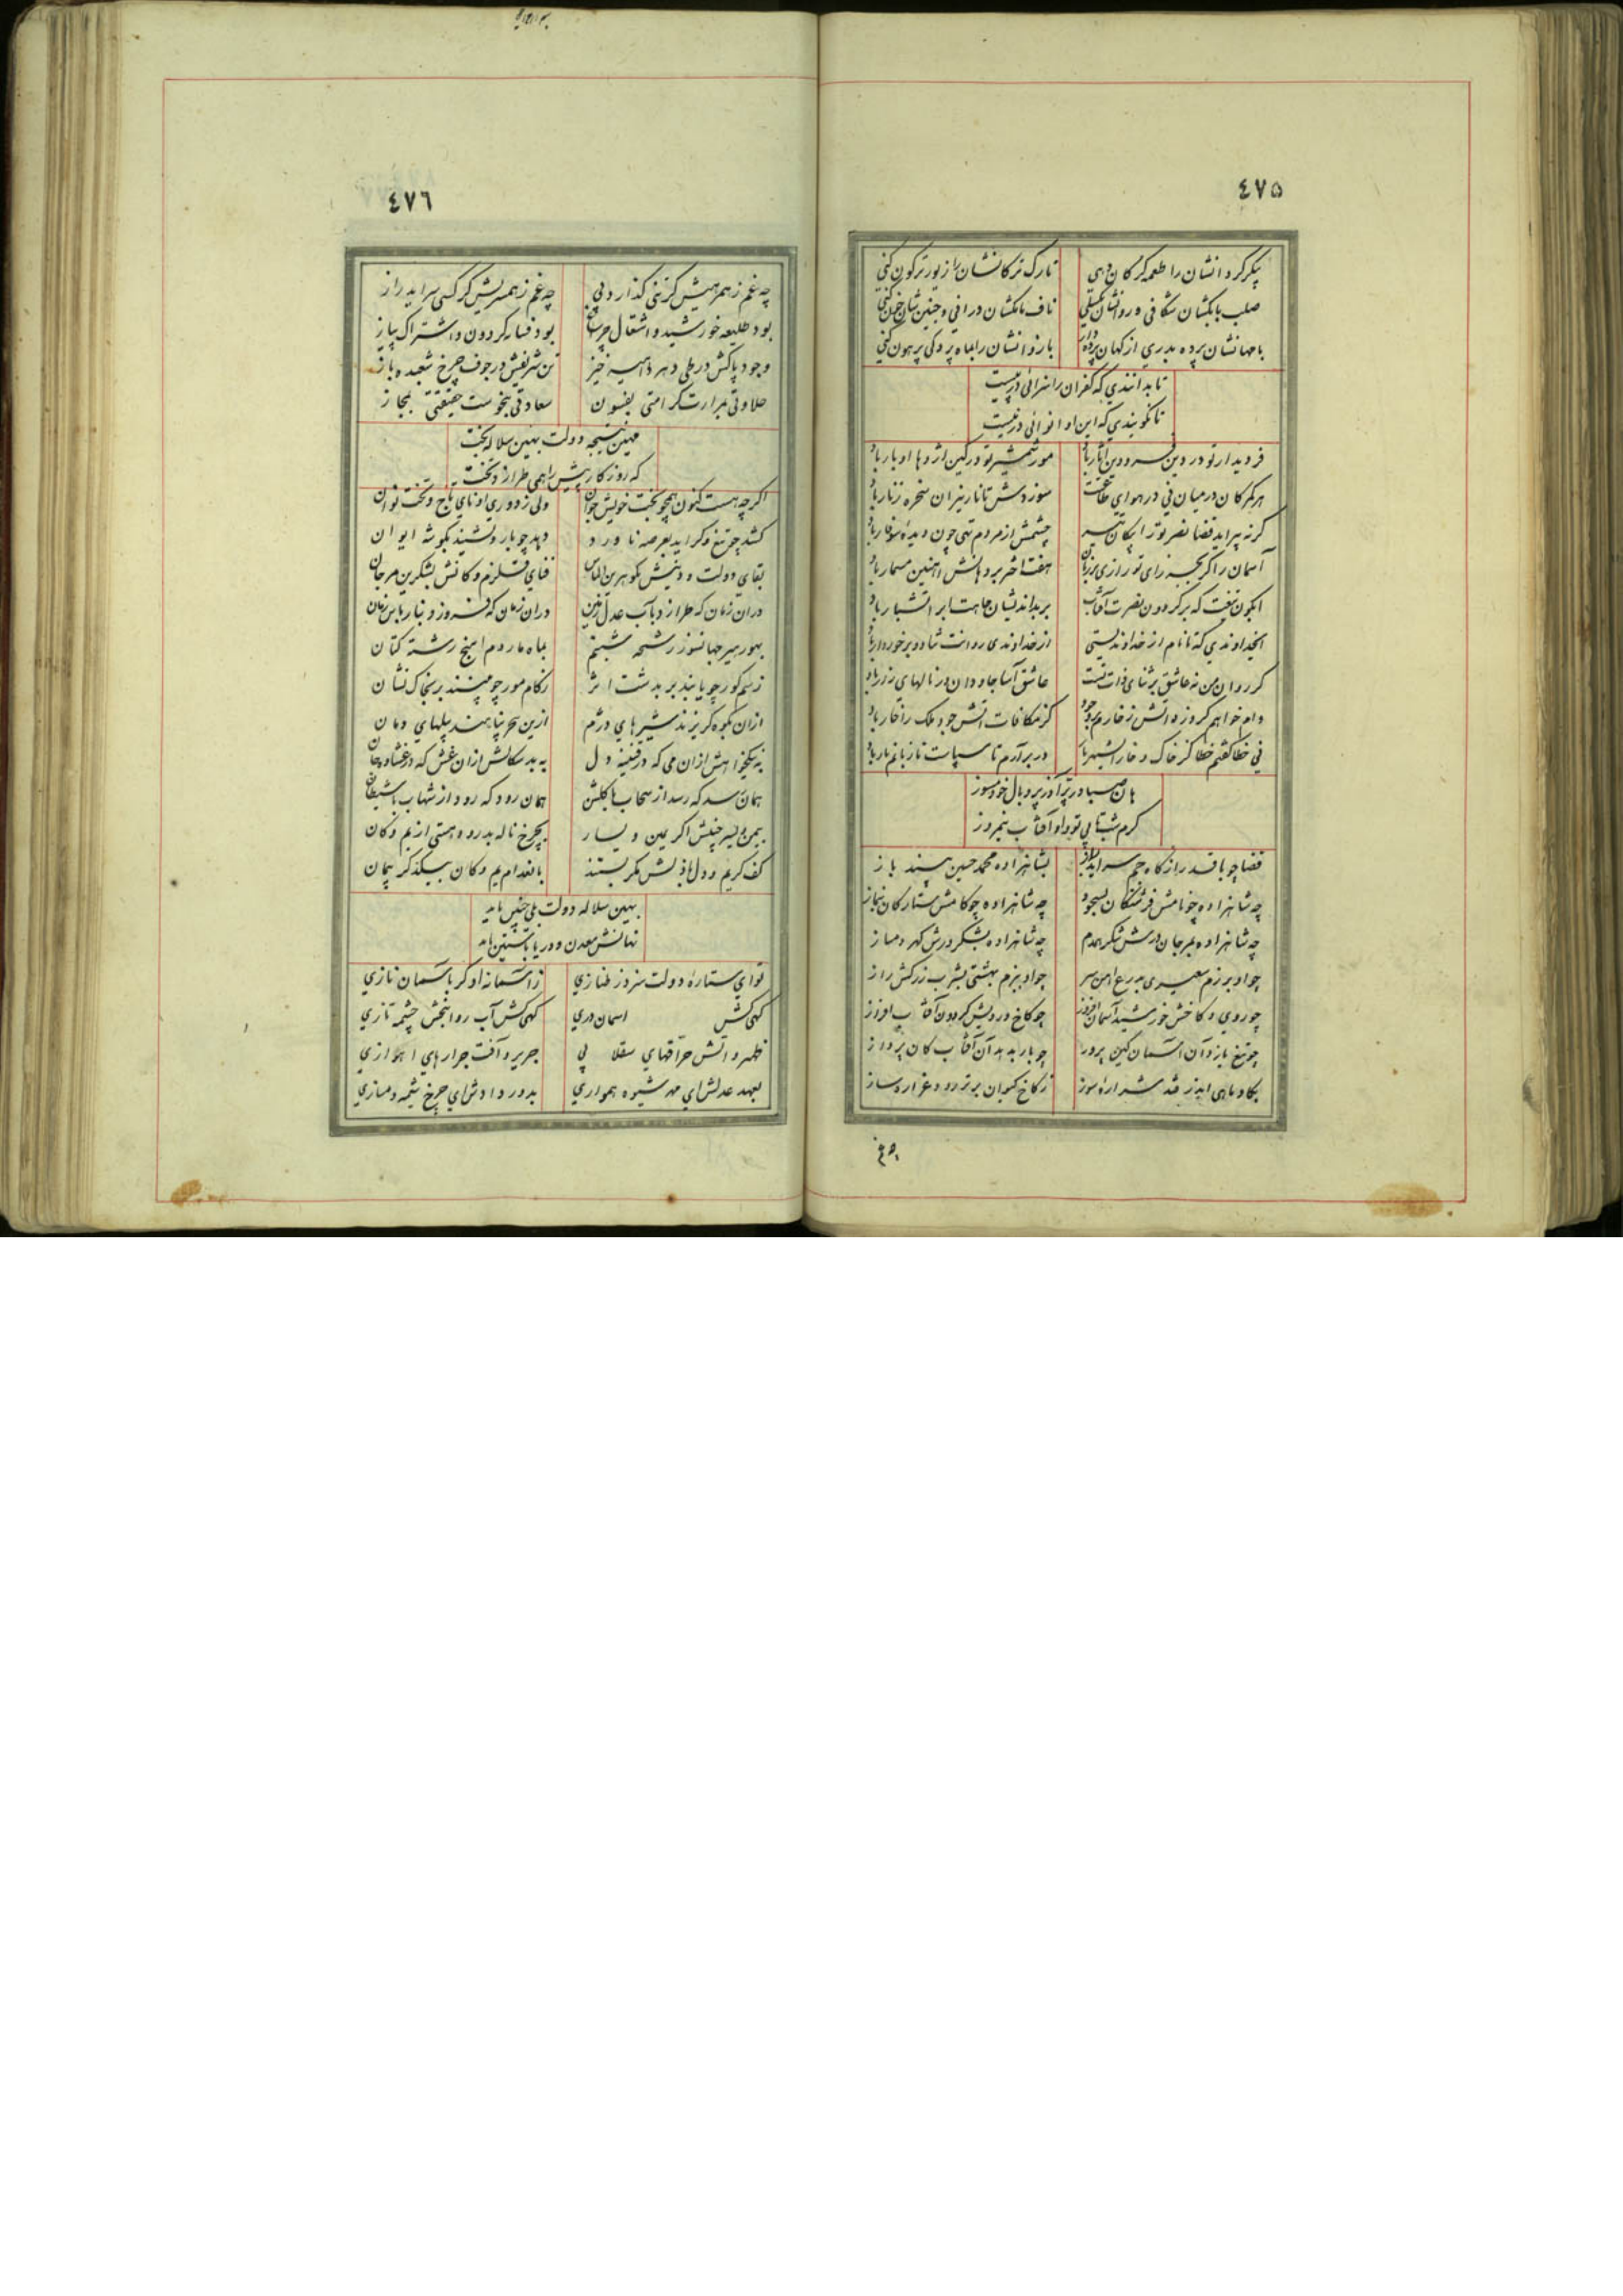 ٤٧٥
پیکر کردانشان را طعمه کرکان دهی تارک ترکانشان را زیور ترکون کنی
صلب بابکشان شکافی و روانشان ناف مامکشان درانی و جنین شان خون کنی
بامهانشان پرده بدری از کهان بازوانشان را بماه پردکی پرهون کنی
تا بدانندی که کفران را سزائی در پیست
تا نکویندی که این او انوائی در نیست
فر دیدار تو در دین باد مور شمشیر تو در کین اژدها اوبار باد
هر کمر کان در میان نی در هوای سوز دوش تا تار نیران سخره زنار باد
کر نه پیراید قضا نصر تو را پیکان تیر چشمش از مردم تهی چون دیده سوفار باد
آسمان را کر بجز رای تو رازی بر زبان هفت اختر بر دهانش اهنین مسمار باد
ایکون تیغت که بر کردون نصرت آفتاب بر بداندیشان جاهت ابر اتشبار باد
ایخداوندی که تا نام از خداوندیستی از خداوندی روانت شاد و برخوردار باد
کر روان من نه عاشق بر ثنای ذات تست عاشق آسا جاودان در نالهای زار باد
وام خواهم کر وزه اتش زخارم در وجود کز مکافات اتش جود ملک زخار باد
نی خطا کفتم خطا کز خاک و خار در برآرم تا سپاست تا زبانم بار باد
هان صبا در پر آذر پر و بال خود مسوز
کرم شبتابی تو و او آفتاب نیمروز
قضا چو با قدر از کاه جم سراید راز بشاهزاده محمد حسین بیند باز
چه شاهزاده چو نامش فرشتکان بسجود چه شاهزاده چو کامش ستارکان بنماز
چه شاهزاده بمرجان درش شکر همدم چه شاهزاده بشکر درش کهر دمساز
چو او برزم سعیدی بدرع اهن سر چو او ببزم بهشتی بشرب زرکش راز
چو روی و کاخش خورشید آسمان افروز چو کاخ و رویش کردون آفتاب افروز
چو تیغ یازد آن آسمان کین پرور چو بار بدهد آن آفتاب کان پرداز
بکاو ماهی ایدر فتد شراره سوز ز کاخ کیوان برتر رود غرار و ساز
٤٧٦
چه غم ز همرهیش کزنی کذارد پی چه غم ز همسریش کر کسی سراید راز
بود طلیعه خورشید و اشتعال چراغ بود فسار کردون و اشتراک پیاز
وجود پاکش در طی دهر داهیه خیز تن شریفش در جوف چرخ شعبده باز
حلاوتی بمرارت کرامتی بفسون سعادتی بنحوست حقیقتی بمجاز
مهین نتیجه دولت بهین سلاله بخت
که روزکار پیش را همی طرازد تخت
اکرچه هست کنون همچو بخت خویش جوان ولی ز دوری او نای تاج و تخت نوان
کشد چو تیغ و کراید بعرصه ناورد دهد چو بار و نشیند بکوشه ایوان
بقای دولت و دینش بکوهرین الماس فنای قلزم و کانش بشکرین مرجان
در ان زمان که طرازد بآب عدل زمین در ان زمان که فروزد بنار باس زمان
بهور هیر جهانسوز رشحه شبنم بماه مار دم اهنج رشته کتان
ز سم کور چو یابند بر بدشت اثر ز کام مور چو بینند بر بخاک نشان
از ان بکوه کریزند شیرهای دژم ازین ببحر پناهند پیلهای دمان
به نیکخواهش از ان می که در قنینه دل به بدسکالش از ان غش که در غشاوه جان
همان رسد که رسد از سحاب با کلشن همان رود که رود از شهاب با شیطان
بیمن و یسر چنینش اکر یمین و یسار بچرخ ناله بدرود هستی از یم و کان
کف کریم و دل باذلش مکر بستند بانعدام یم و کان بیکدکر پیمان
بهین سلاله دولت بلی چنین باید
نهانش معدن و دریا باستین باید
توای ستاره دولت سزد ز طنازی ز اسمانه او کر باسمان نازی
کهی کش اسمان دری کهی کش آب روانبخش چشمه تازی
ظهر و اتش حراقهای سقلابی جریر و آفت جرارهای اهوازی
بعهد عدلش ای مهر شیوه همواری بدور دادش ای چرخ شیمه دمسازی